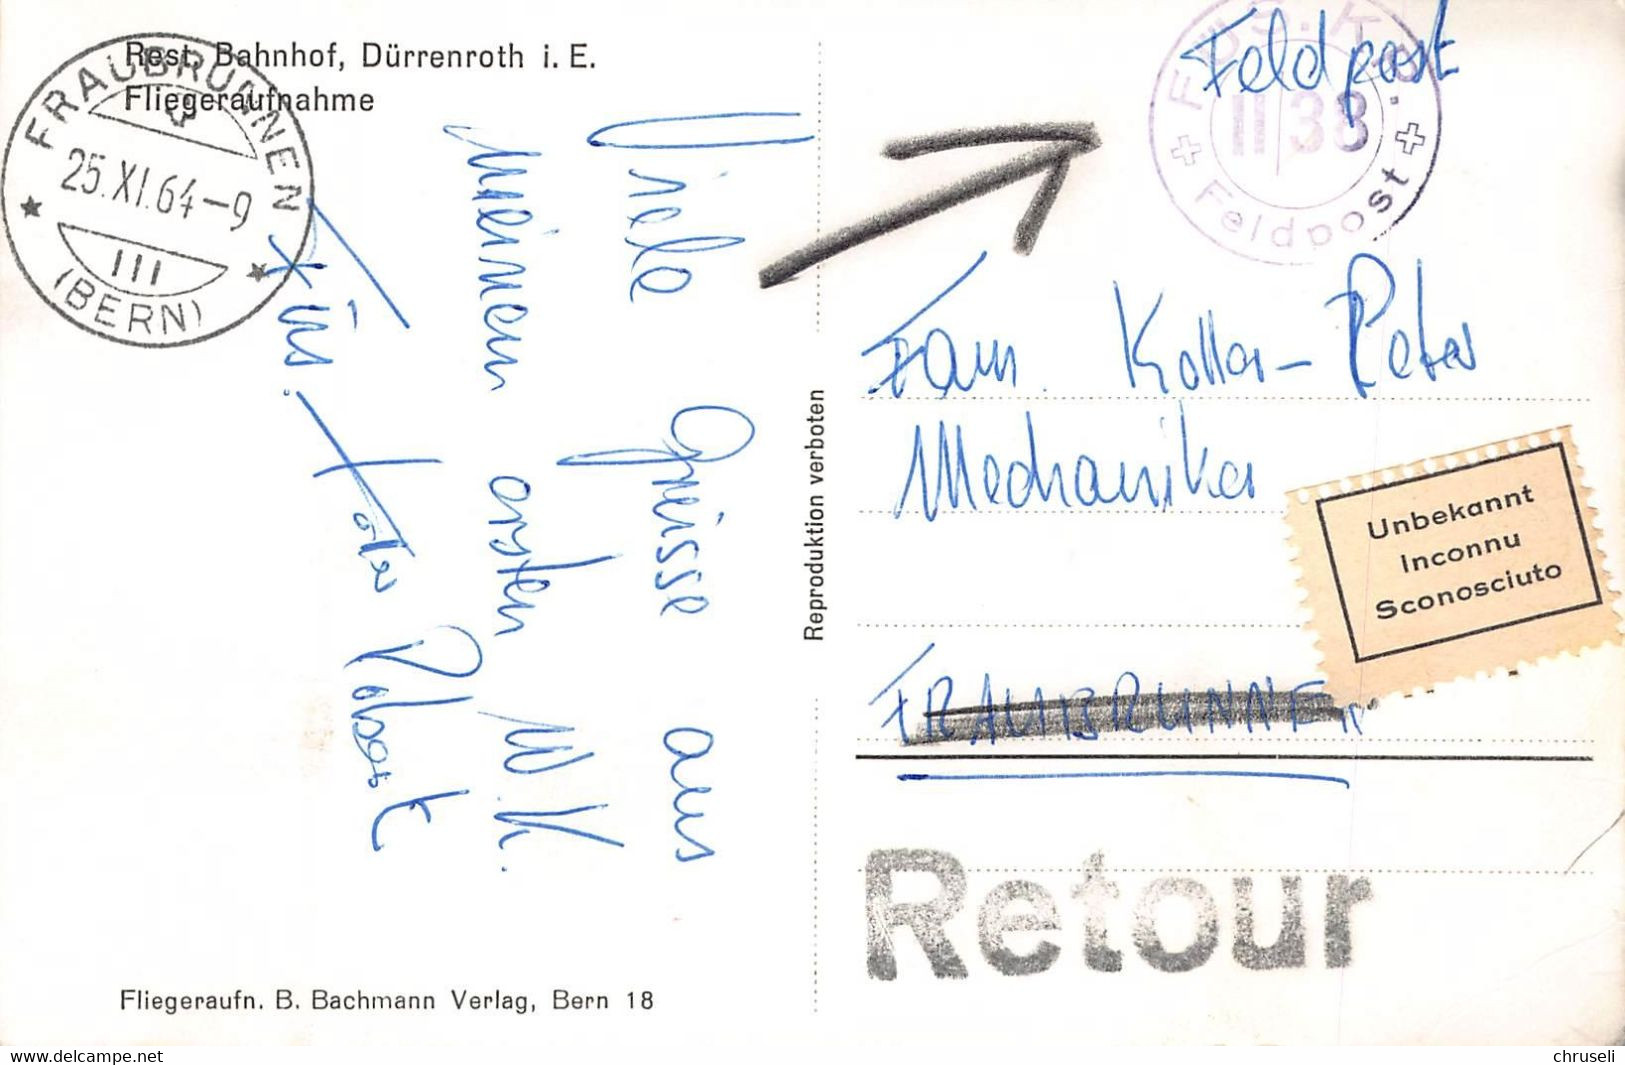 Rest. Bahnhof, Dürrenroth i. E.
Fliegeraufnahme
FRAUBRUNNEN
25.XI.64-9
III
(BERN)
Viele Grüsse aus
meinem ersten W.K.
Füs.
Robert
Fliegeraufn. B. Bachmann Verlag, Bern 18
Reproduktion verboten
Feldpost
FÜS. KP.
II/38
Feldpost
Fam. Koller-Peter
Mechaniker
Unbekannt
Inconnu
Sconosciuto
FRAUBRUNNEN
Retour
delcampe.net
chruseli